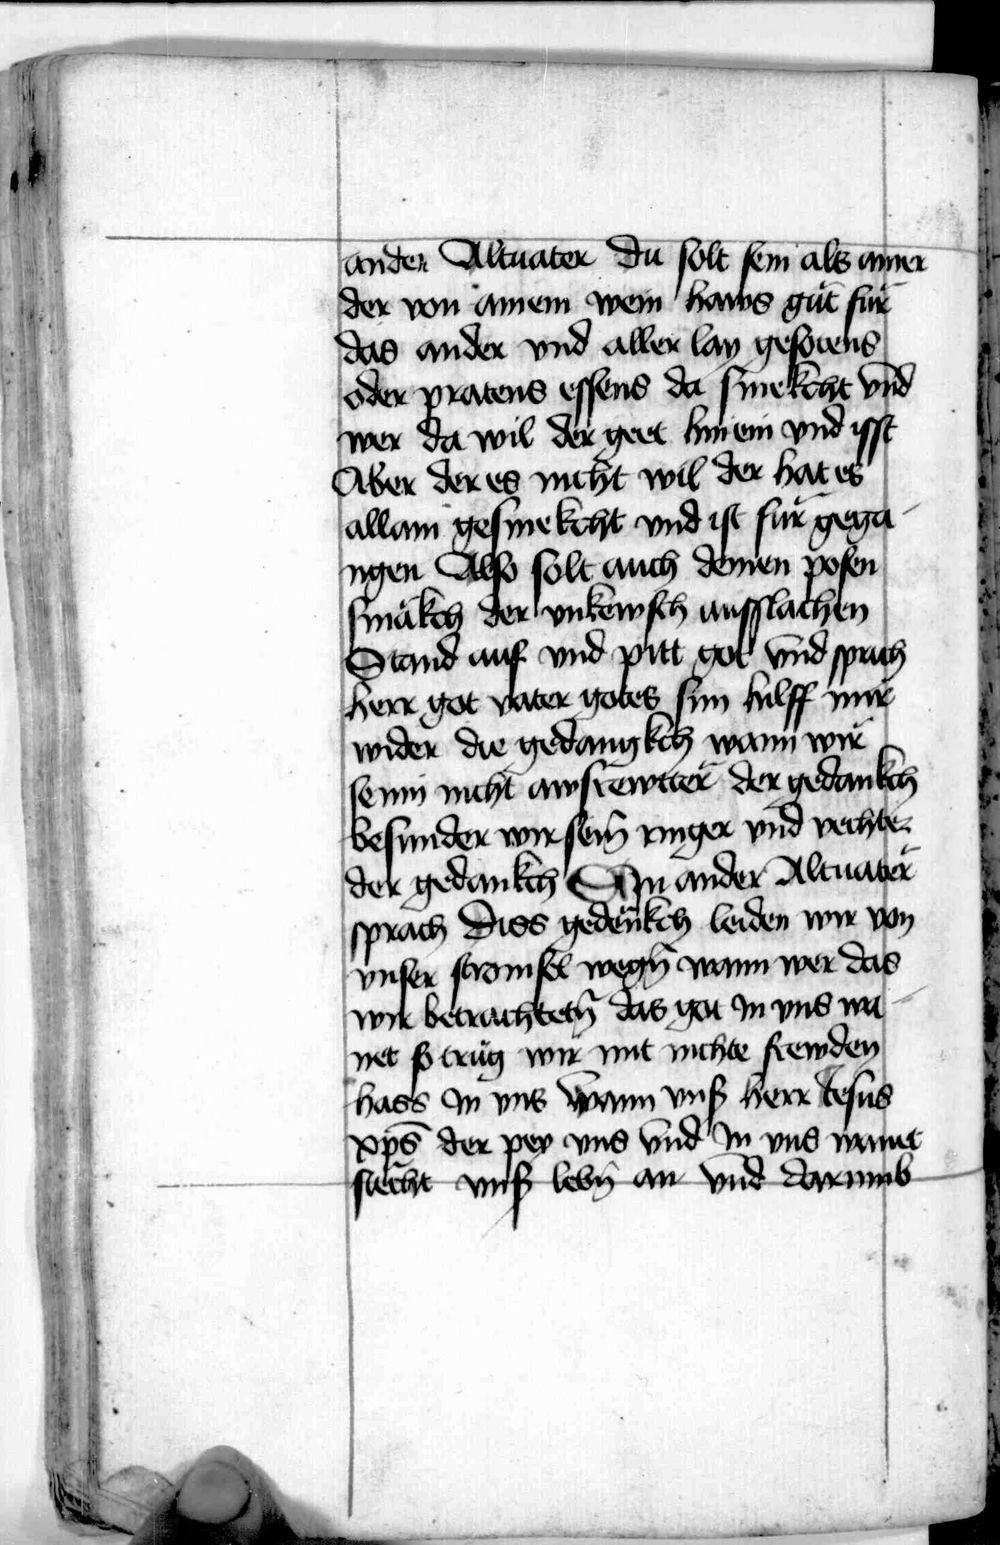 ander Altuater du solt sein als ainer
der von ainem wein haws gůt für
das ander vnd aller lay gesotens
oder pratens essens da smekcht vnd
wer da wil der geet hinein vnd isst
Aber der es nicht wil der hat es
allain gesmekcht vnd ist für gega-
ngen Also solt auch deinen posen
smäkch der vnkewsch ausslachen
Stand auf vnd pitt got vnd sprich
herr got vater gotes sun hilff mir
wider die gedangkch wann wir
senn nicht awsrewtter der gedankch
besunder wir sein̄ ringer vnd vechter
der gedankch Ain ander Altuater
sprach Diss gedenkch leiden wir von
vnser wegn̄ wann wer das
wir betrachtetn̄ das got In vns wa-
net so trüg wir mit nichte frewden
hass In vns wann vnß herr Jesus
xp̄s der pey vns vnd In vns wanet
siecht vnß lebn̄ an vnd darumb